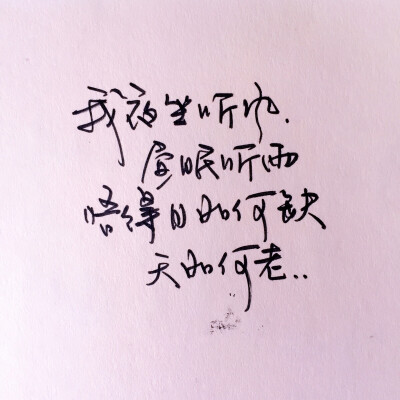 我夜坐听风.
昼眠听雨
悟得月如何缺
天如何老..